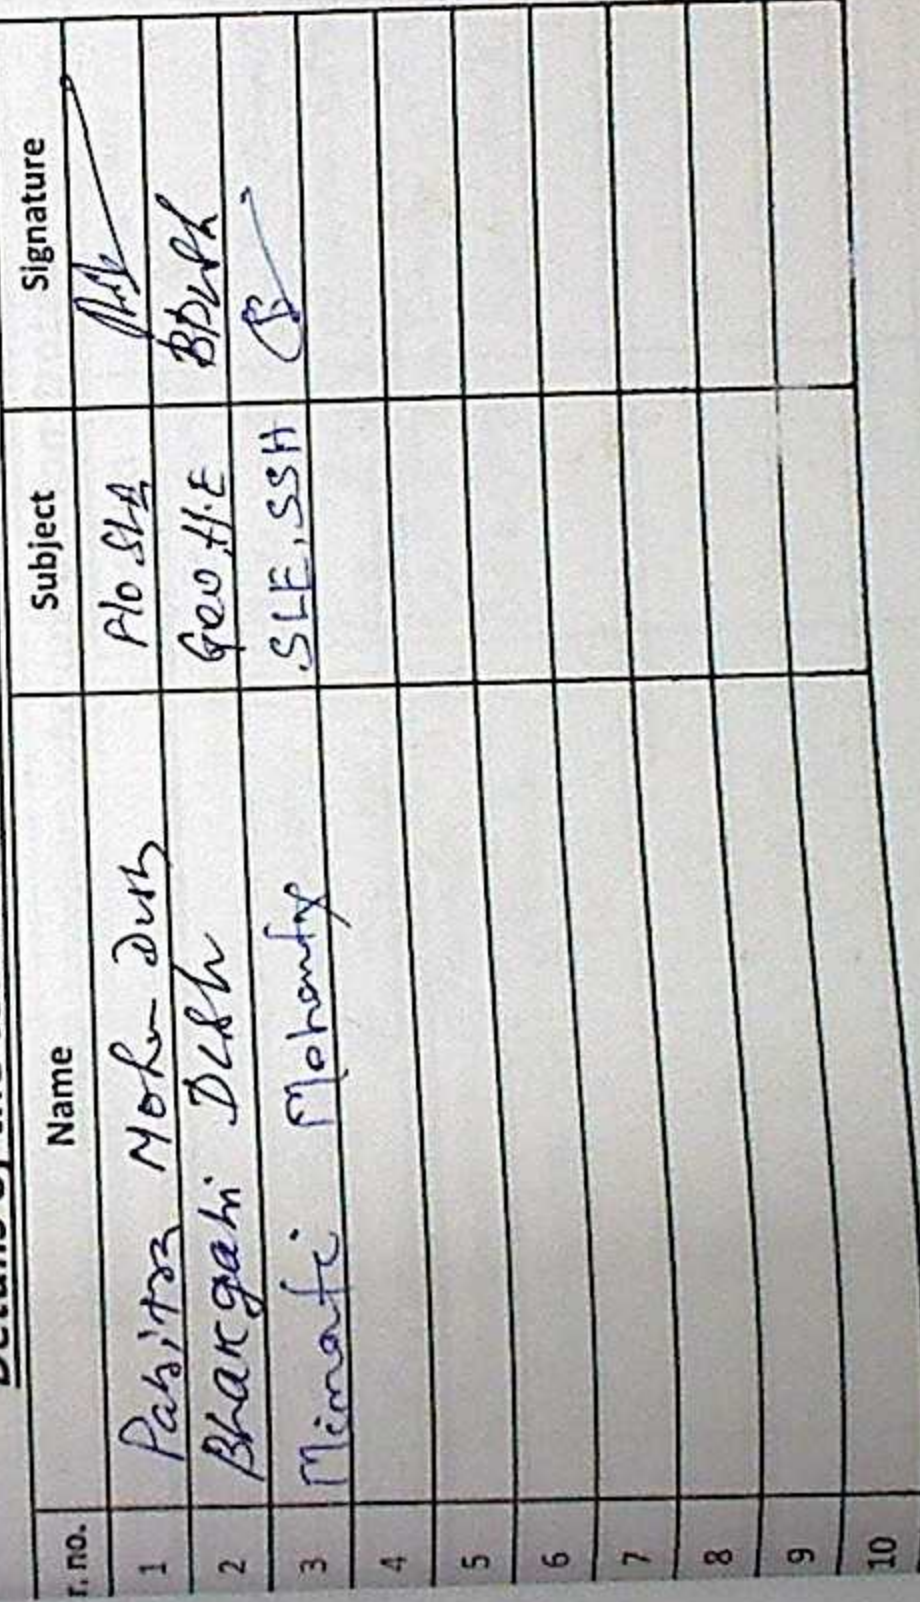 r. no. Name Subject Signature
1 Pabitra Mohan Dash
2 Dash Geo, H.E BDash
3 Minati Mohanty SLE, SSH
4
5
6
7
8
9
10